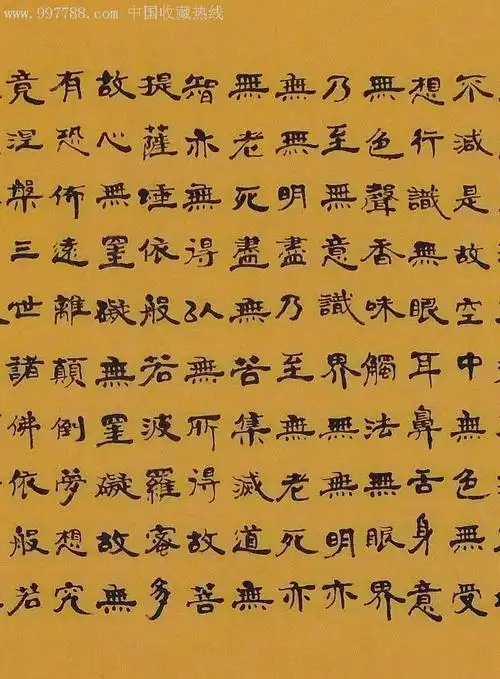 www.997788.com 中国收藏热线
不減是故空中無色無受
想行識無眼耳鼻舌身意
無色聲香味觸法無眼界
乃至無意識界無無明亦
無無明盡乃至無老死亦
無老死盡無苦集滅道無
智亦無得以無所得故菩
提薩埵依般若波羅蜜多
故心無罣礙無罣礙故無
有恐怖遠離顛倒夢想究
竟涅槃三世諸佛依般若